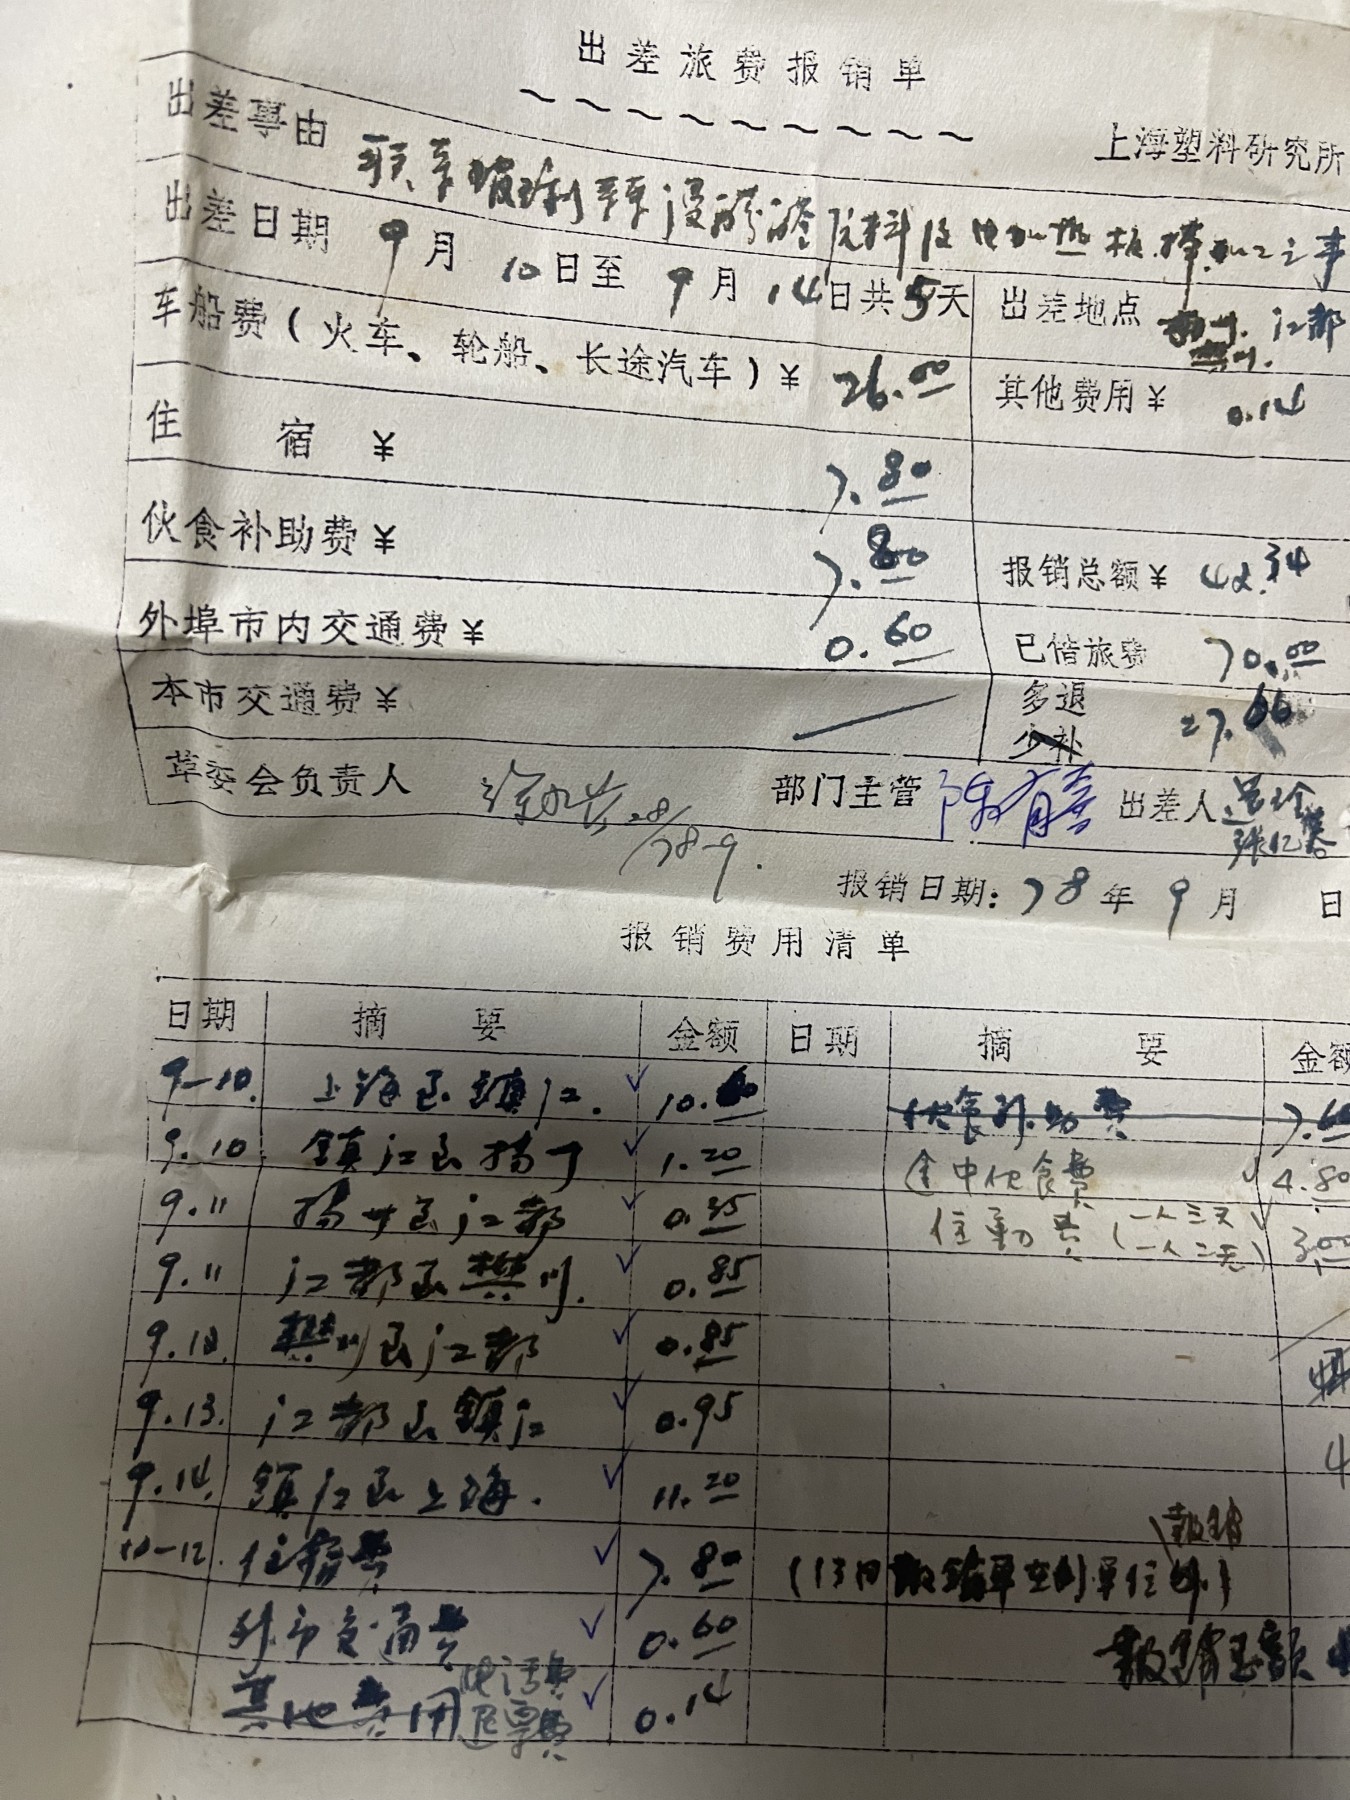 出差旅费报销单
上海塑料研究所
出差事由 联系玻璃 原料及电加热 加工之事
出差日期 9月10日至9月14日共5天 出差地点 扬州.江都
樊川.
车船费(火车、轮船、长途汽车)¥ 26.00 其他费用¥ 0.14
住 宿 ¥ 7.80
伙食补助费¥ 7.80 报销总额¥ 42.34
外埠市内交通费¥ 0.60 已借旅费 70.00
本市交通费¥ 多退 27.66
少补
革委会负责人 部门主管 陈有喜 出差人
28/78-9.
报销日期: 78年9月 日
报销费用清单
日期 摘 要 金额 日期 摘 要 金额
9-10. 上海至镇江. 10.60 伙食补助费 7.60
9.10. 镇江至扬州 1.20 途中伙食费 4.80
9.11 扬州至江都 0.35 住勤费 (一人三天 3.00
(一人二天)
9.11 江都至樊川. 0.85
9.12. 樊川至江都 0.85
9.13. 江都至镇江 0.95
9.14. 镇江至上海. 11.20
报销
10-12. 住宿费 7.80 (13日 单在 单位 )
外市交通费 0.60 报销总额
其他费用 电话费 退票费 0.14